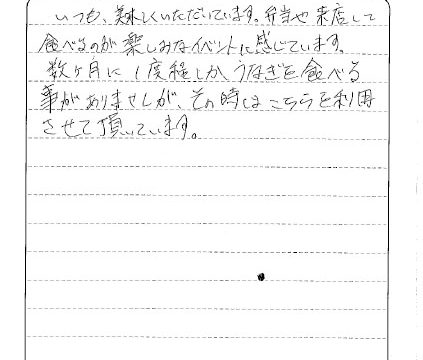 いつも、美味しくいただいています。弁当や来店して
食べるのが楽しみなイベントに感じています。
数ヶ月に1度程しか、うなぎを食べる
事がありませんが、その時はこちらを利用
させて頂いています。